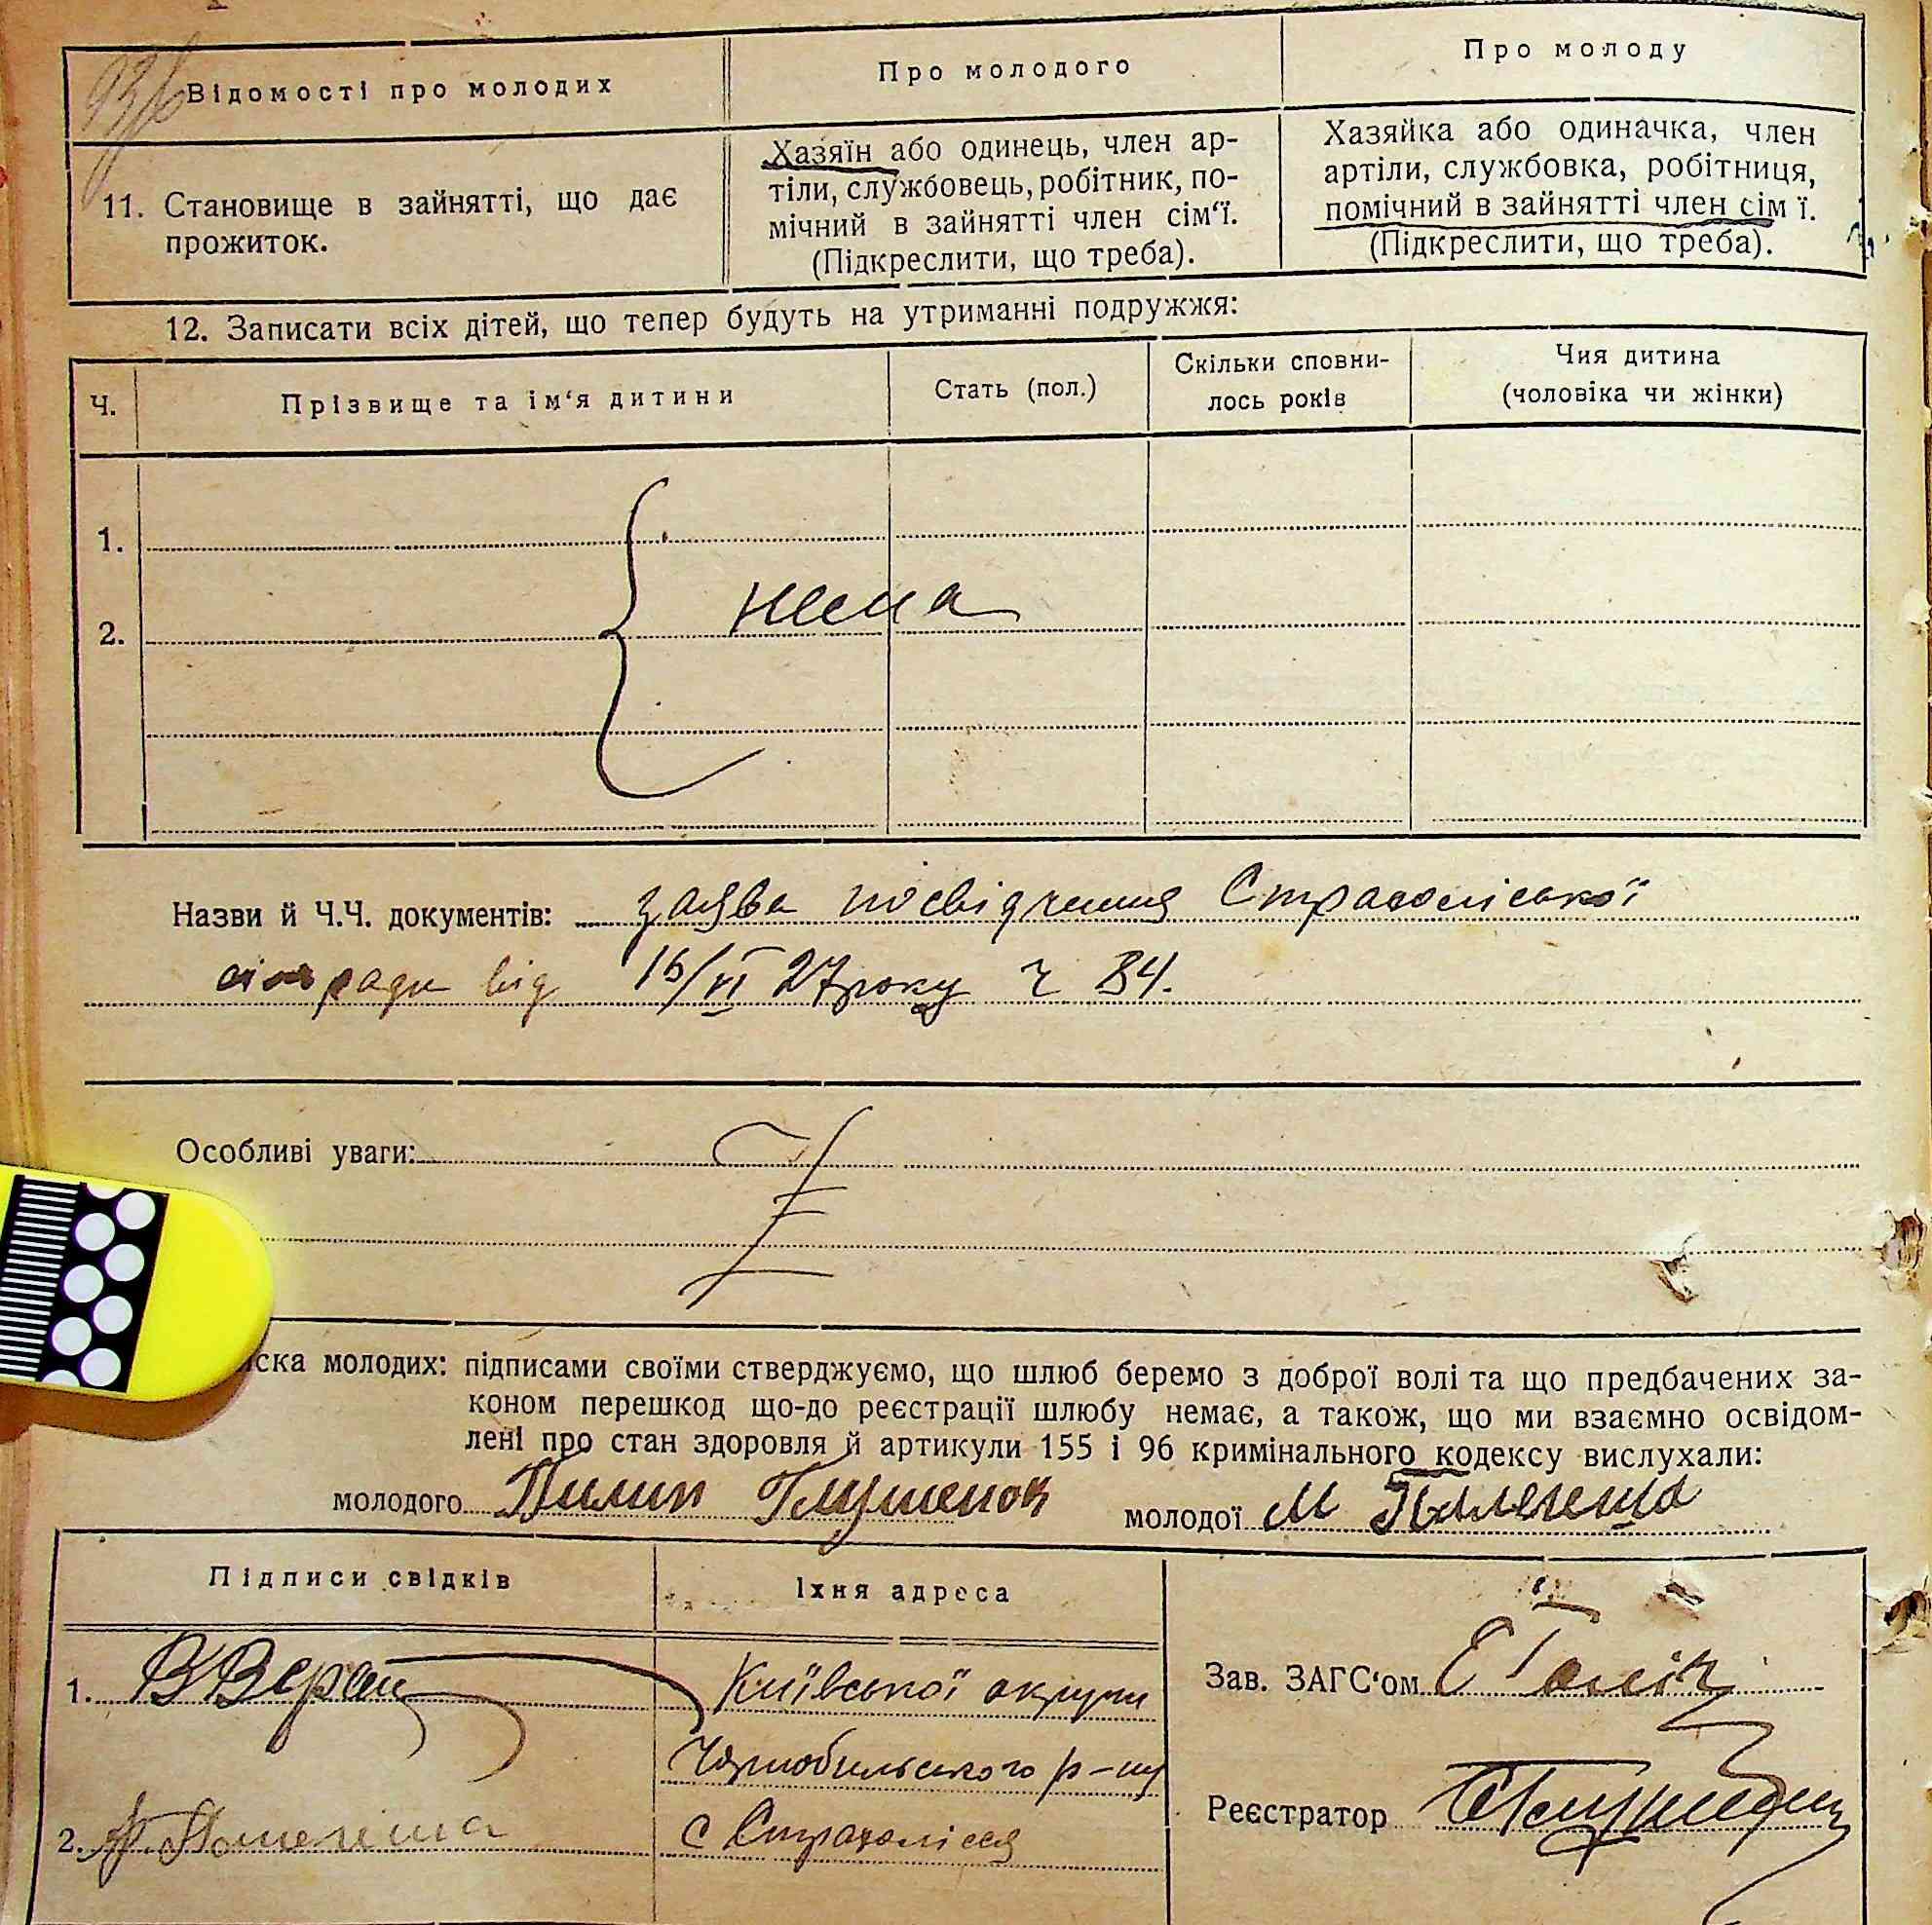 Відомості про молодих
Про молодого
Про молоду
11. Становище в зайнятті, що дає
прожиток.
Хазяїн або одинець, член ар-
тіли, службовець, робітник, по-
мічний в зайнятті член сім‘ї.
(Підкреслити, що треба).
Хазяйка або одиначка, член
артіли, службовка, робітниця,
помічний в зайнятті член сім ї.
(Підкреслити, що треба).
12. Записати всіх дітей, що тепер будуть на утриманні подружжя:
Ч.
Прізвище та ім‘я дитини
Стать (пол.)
Скільки сповни-
лось років
Чия дитина
(чоловіка чи жінки)
1.
2.
нема
Назви й Ч.Ч. документів: заява посвідчення Страхоліської
сільради від 16/VI 27 року ч 84.
Особливі уваги:
ска молодих: підписами своїми стверджуємо, що шлюб беремо з доброї волі та що предбачених за-
коном перешкод що-до реєстрації шлюбу немає, а також, що ми взаємно освідом-
лені про стан здоровля й артикули 155 і 96 кримінального кодексу вислухали:
молодого Пилип Глушенок молодої М
Підписи свідків
Їхня адреса
1.
Київської округи
Чорнобильського р-ну
2.
с Страхолісся
Зав. ЗАГС‘ом
Реєстратор